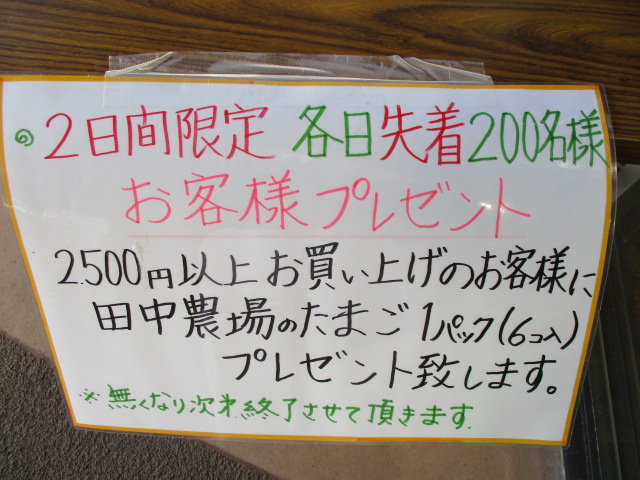 2日間限定 各日先着200名様
お客様プレゼント
2,500円以上お買い上げのお客様に
田中農場のたまご1パック(6コ入)
プレゼント致します。
※無くなり次第終了させて頂きます.